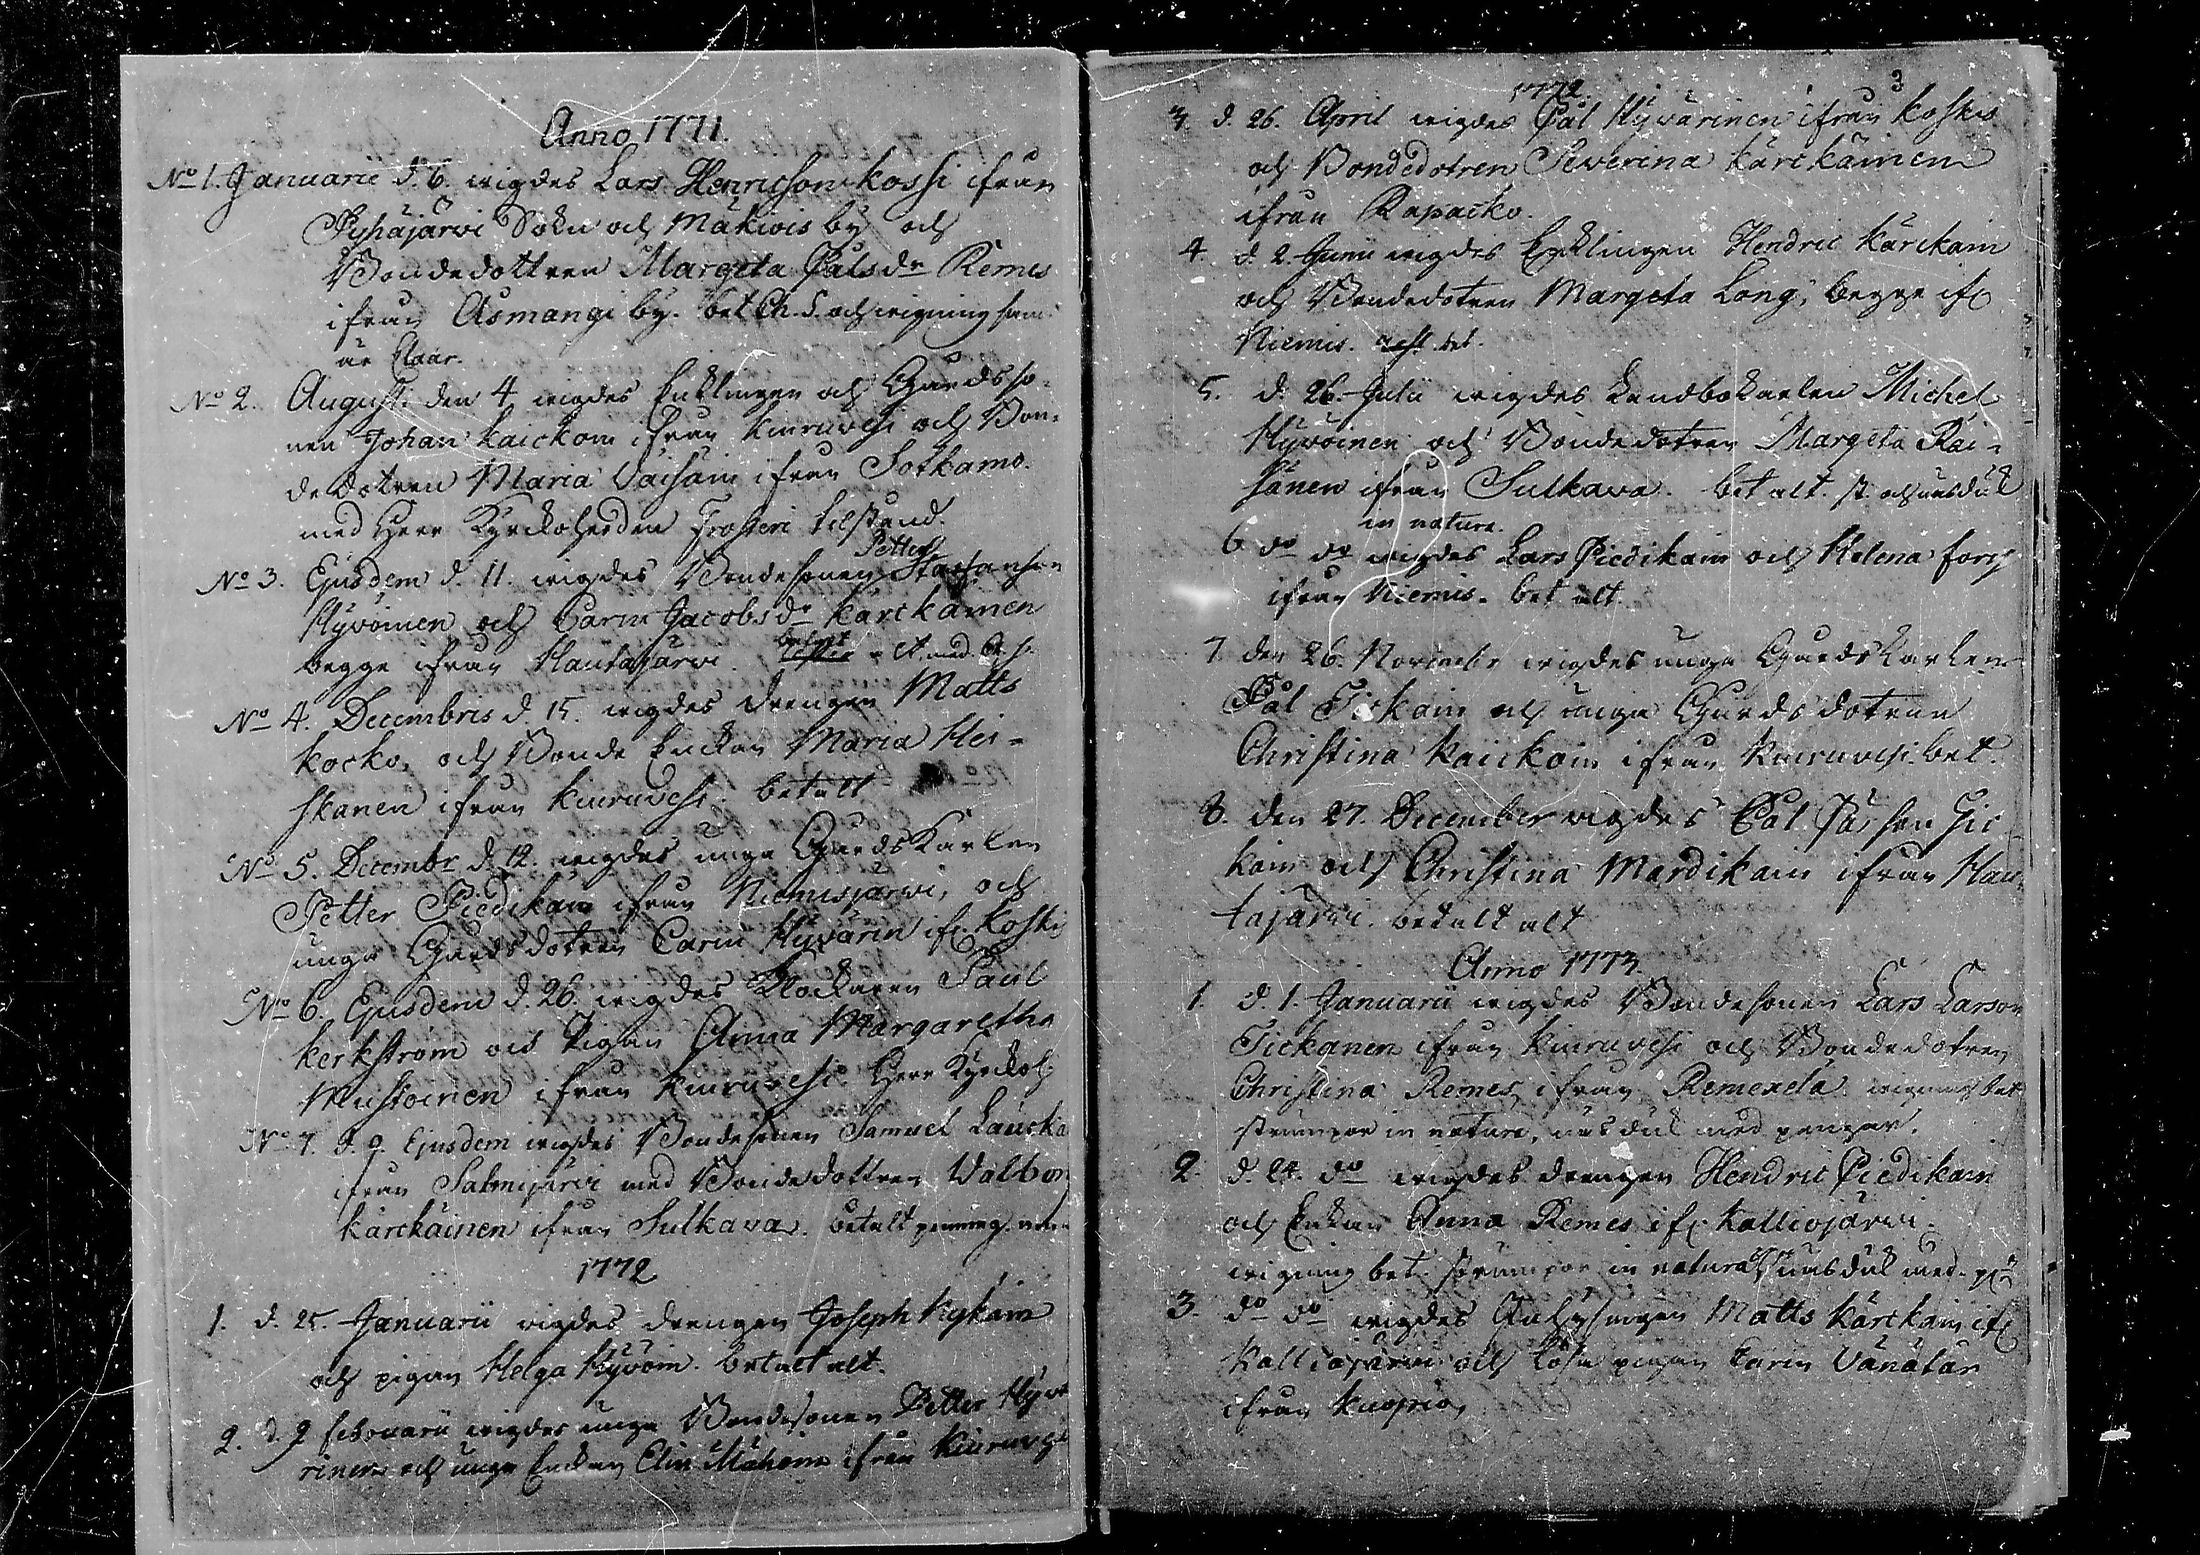 Anno 1771.
No 1. Januarii d. 6. wigdes Lars Henricson Kossi ifrån
Pyhäjärvi Sokn och Mäkivis by och
Bondedottren Margeta Pålsdr Remes
ifrån Osmangi by. bet Ch. S. och wigning som
är Claar.
No 2. Augusti den 4 wigdes Enklingen och Gårdsso-
nen Johan Kaickoin ifrån Kiuruvesi och Bon-
dedotren Maria Väisäin ifrån Sotkamo.
med Herr Kyrckoherden Frosteri tilstånd.
No 3. Ejusdem d. 11. wigdes Bondesonen Petter Staffanson
Hyvöinen och Carin Jacobsdr Kärckäinen
begge ifrån Hautajärvi. betalt
No 4. Decembris d. 15. wigdes drengen Matts
Kocko, och Bonde Enckan Maria Hei-
skanen ifrån Kiuruvesi. betalt
No 5. Decembr d. 12. wigdes unga Gårds Karlen
Petter Piedikäin ifrån Niemisjärvi, och
unga Gårdsdotren Carin Hyvärin ifr. Koskis
No 6. Ejusdem d. 26. wigdes Klockaren Paul
Kerkström och Pigan Anna Margaretha
Mustoinen ifrån Kiuruvesi. Herr Kyrckoh.
No 7. d. 9. Ejusdem wigdes Bondesonen Samuel Laucka
ifrån Salmijärvi med Bondedottren Walbor
Kärckäinen ifrån Sulkava. betalt penning
1772
1. d. 25. Januarii wigdes drengen Joseph Nykäin
och pigan Helga Hyvöin. betalt alt.
2. d. 9 februarii wigdes unga Bondesonen Petter Hyvä
rinen och unga Enckan Elin Mähöin ifrån Kiuruvesi
3
1772.
3. d. 26. April wigdes Pål Hyvärinen ifrån Koskis
och Bondedotren Severina Kärckäinen
ifrån Rapacko.
4. d. 2. Junii wigdes Encklingen Hendric Kärckäin
och Bondedotren Margeta Long, begge ifr.
Niemis. bet.
5. d. 26. Julii wigdes Landbokarlen Michel
Hyvöinen och Bondedotren Margeta Räi-
sänen ifrån Sulkava. bet alt. st. och näsduk
in natura.
6 do do wigdes Lars Piedikäin och Helena forss
ifrån Niemis. bet alt.
7 den 26. Novembr wigdes unga Gårds Karlen
Pål Tickain och unga Gårdsdotren
Christina Kaickoin ifrån Kiuruvesi. bet.
8. den 27. December wigdes Pål Påhlson Tic
kain och Christina Mardikain ifrån Hau-
tajärvi. betalt alt
Anno 1773.
1. d. 1. Januarii wigdes Bondesonen Lars Larson
Tickanen ifrån Kiuruvesi och Bondedotren
Christina Remes, ifrån Remexelä. wigning bet
strumpor in natura, näsduk med pengar.
2. d. 24. do wigdes drengen Hendric Piedikain
och Enkan Anna Remes ifr. Kalliojärvi.
wigning bet. strumpor in natura näsduk med
3. do do wigdes Matts Kärckäin ifr.
Kalliojärvi och lösa pigan Carin Vänätär
ifrån Kuopio,